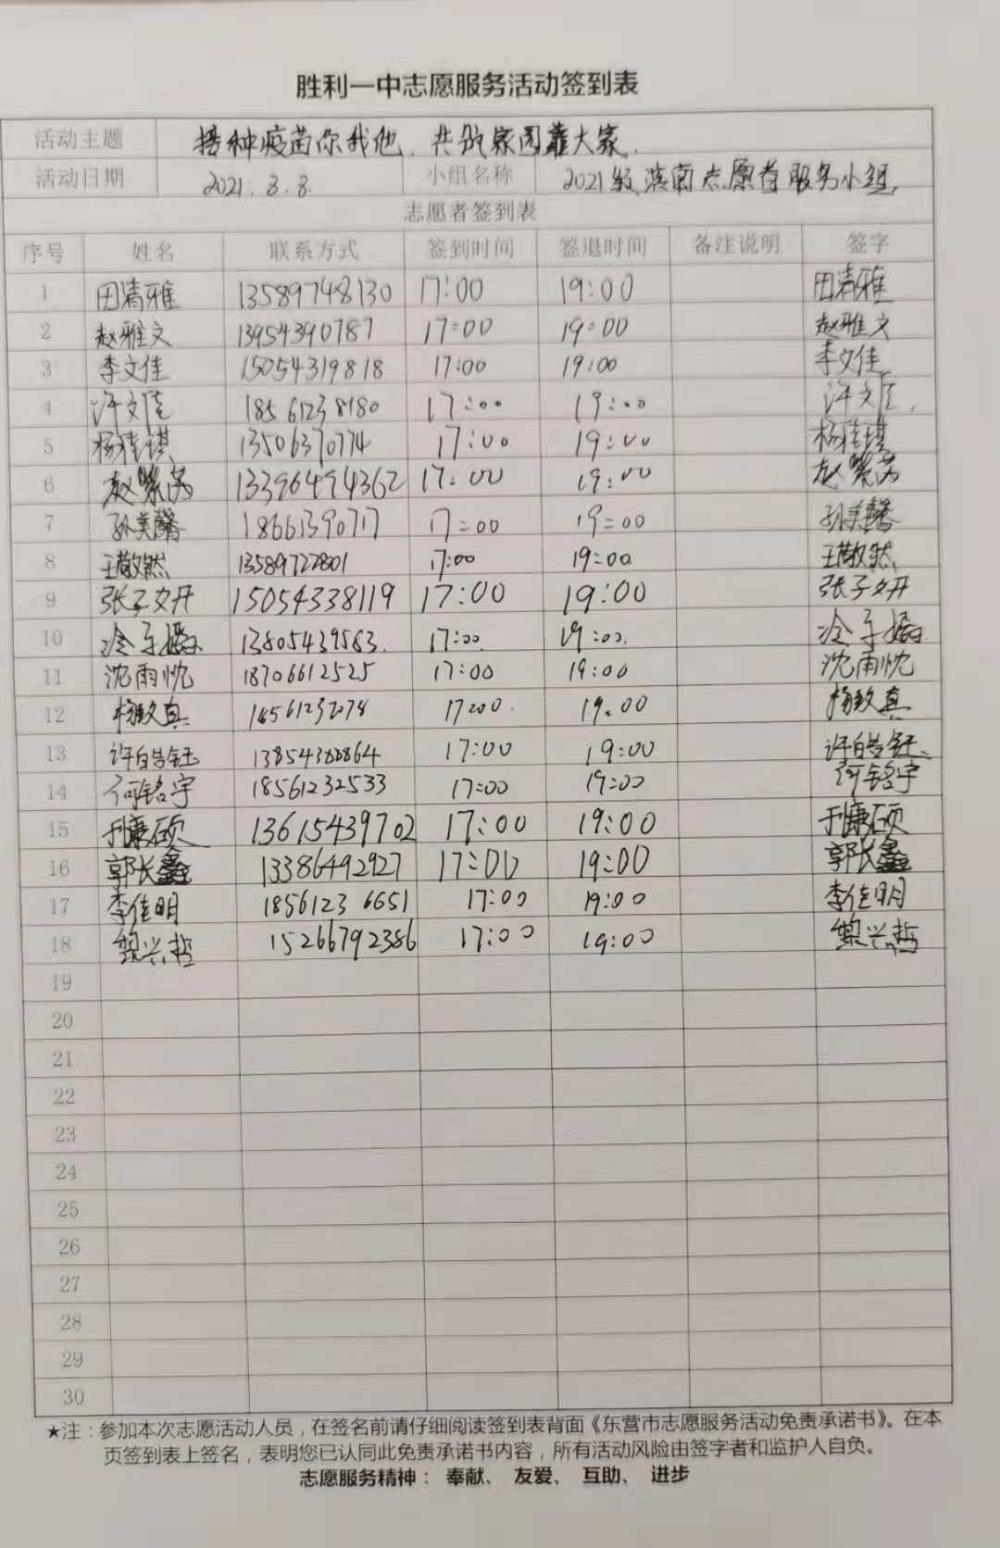 胜利一中志愿服务活动签到表
活动主题 接种疫苗你我他,共筑家园靠大家.
活动日期 2021.8.8. 小组名称 2021级滨南志愿者服务小组
志愿者签到表
序号 姓名 联系方式 签到时间 签退时间 备注说明 签字
1 田清雅 13589748130 17:00 19:00 田清雅
2 赵雅文 13954390787 17:00 19:00 赵雅文
3 李文佳 15054319818 17:00 19:00 李文佳
4 许文 18561238180 17:00 19:00 许文
5 杨佳琪 13506370774 17:00 19:00 杨佳琪
6 赵紫芮 13396494362 17:00 19:00 赵紫芮
7 孙美馨 18661390717 17:00 19:00 孙美馨
8 王敬然 13589722801 17:00 19:00 王敬然
9 张子妍 15054338119 17:00 19:00 张子妍
10 冷子 13805439563. 17:00 19:00. 冷子
11 沈雨忱 18706612525 17:00 19:00 沈雨忱
12 杨致真 17:00. 19:00 杨致真
13 许皓钰 17:00 19:00 许皓钰
14 何铭宇 18561232533 17:00 19:00 何铭宇
15 康硕 13615439702 17:00 19:00 康硕
16 郭长鑫 13386492927 17:00 19:00 郭长鑫
17 李佳明 18561236651 17:00 19:00 李佳明
18 黎兴哲 15266792386 17:00 19:00 黎兴哲
19
20
21
22
23
24
25
26
27
28
29
30
★注:参加本次志愿活动人员,在签名前请仔细阅读签到表背面《东营市志愿服务活动免责承诺书》。在本
页签到表上签名,表明您已认同此免责承诺书内容,所有活动风险由签字者和监护人自负。
志愿服务精神: 奉献、 友爱、 互助、 进步